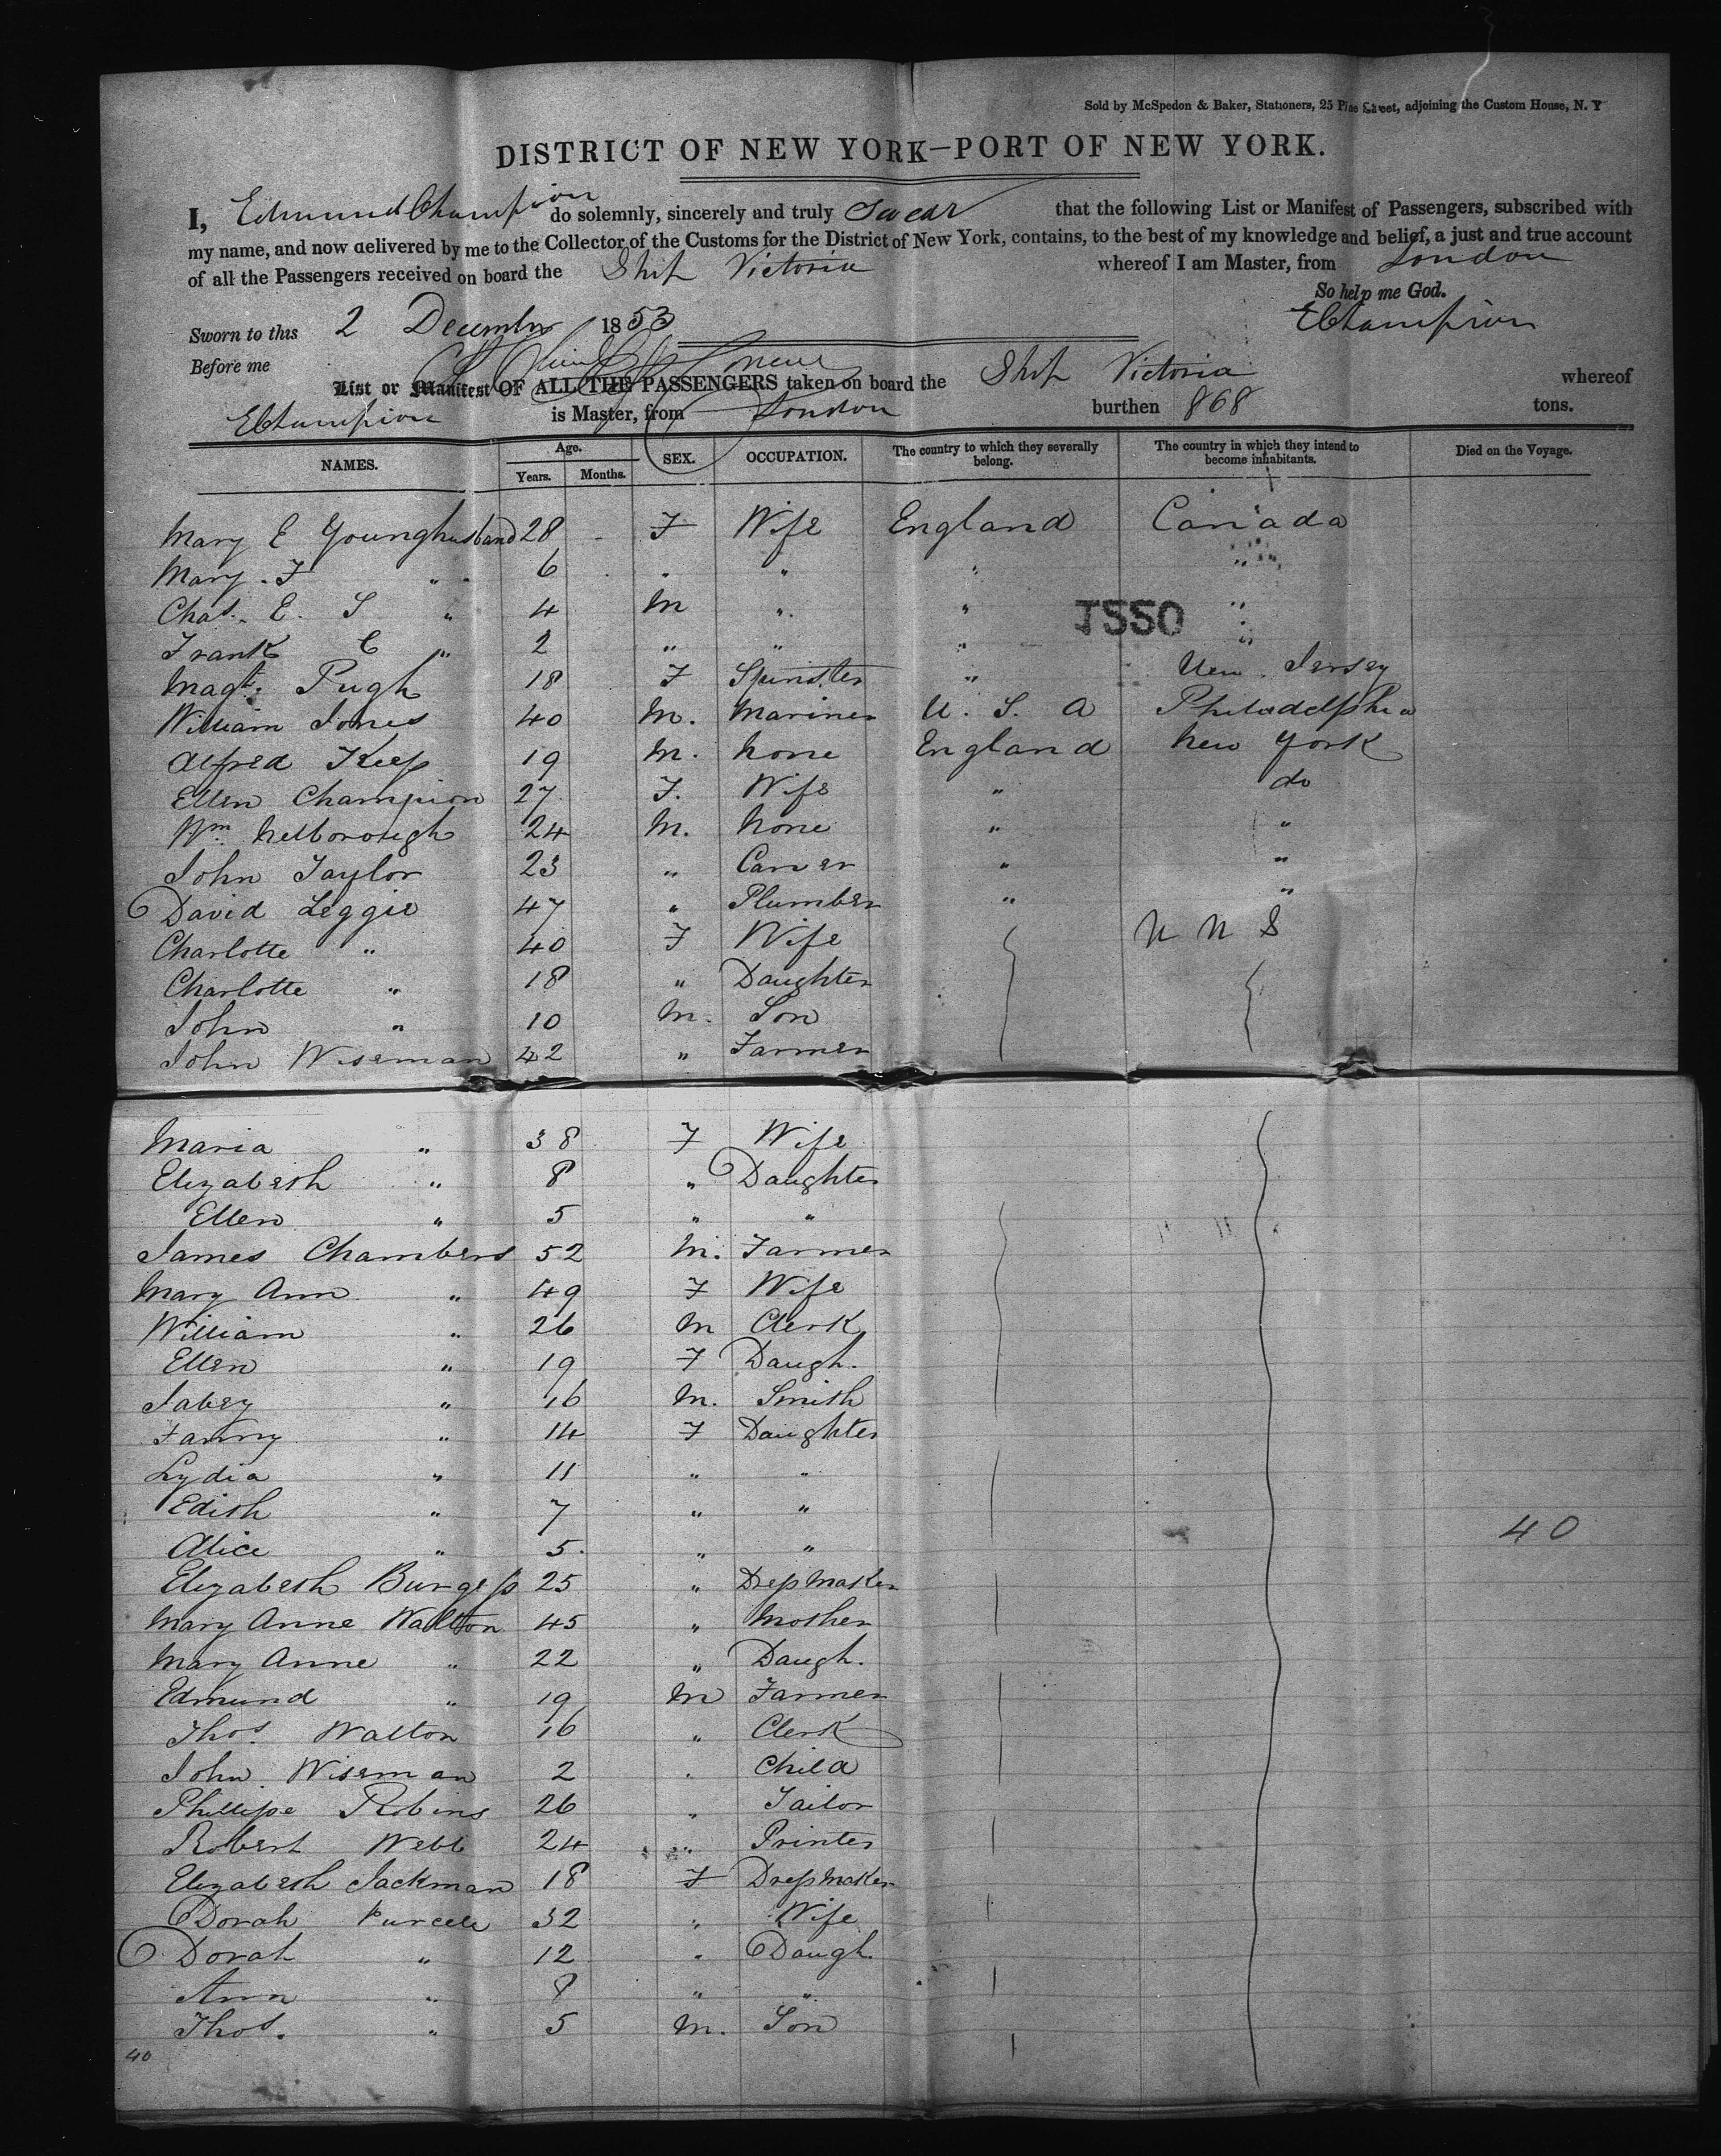 Sold by McSpedon & Baker, Stationers, 25 Pine Street, adjoining the Custom House, N. Y
DISTRICT OF NEW YORK—PORT OF NEW YORK.
I, Edmund Champion do solemnly, sincerely and truly Swear that the following List or Manifest of Passengers, subscribed with
my name, and now delivered by me to the Collector of the Customs for the District of New York, contains, to the best of my knowledge and belief, a just and true account
of all the Passengers received on board the Ship Victoria whereof I am Master, from London
So help me God.
Sworn to this 2 December 1853 EChampion
Before me
List or Manifest OF ALL THE PASSENGERS taken on board the Ship Victoria whereof
EChampion is Master, from London burthen 868 tons.
NAMES. Age. Years. Months. SEX. OCCUPATION. The country to which they severally belong. The country in which they intend to become inhabitants. Died on the Voyage.
Mary E Younghusband 28 - F Wife England Canada
Mary. F " 6 " " " "
Chas. E. S " 4 M " " "
1550
Frank C " 2 " " " "
Magt. Pugh 18 F Spinster " New Jersey
William Jones 40 M. Mariner U. S. A Philadelphia
Alfred Keep 19 M. None England New York
Ellen Champion 27 F. Wife " do
Wm. 24 M. None " "
John Taylor 23 " Carver " "
David Leggie 47 " Plumber " "
Charlotte " 40 F Wife
Charlotte " 18 " Daughter
John " 10 M. Son
John Wiseman 42 " Farmer
Maria " 38 F Wife
Elizabeth " 8 " Daughter
Ellen " 5 " "
James Chambers 52 M. Farmer
Mary Ann " 49 F Wife
William " 26 M Clerk
Ellen " 19 F Daugh.
Jabez " 16 M. Smith
Fanny " 14 F Daughter
Lydia " 11 " "
Edith " 7 " "
40
Alice " 5. " "
Elizabeth Burgess 25 " Dressmaker
Mary Anne Walton 45 " Mother
Mary Anne " 22 " Daugh.
Edmund " 19 M Farmer
Thos. Walton 16 " Clerk
John Wiseman 2 " Child
Phillipe Robins 26 " Tailor
Robert Webb 24 " Printer
Elizabeth Jackman 18 F Dressmaker
Dorah Purcell 32 " Wife
Dorah " 12 " Daugh
Ann " 8 " "
Thos. " 5 M. Son
40